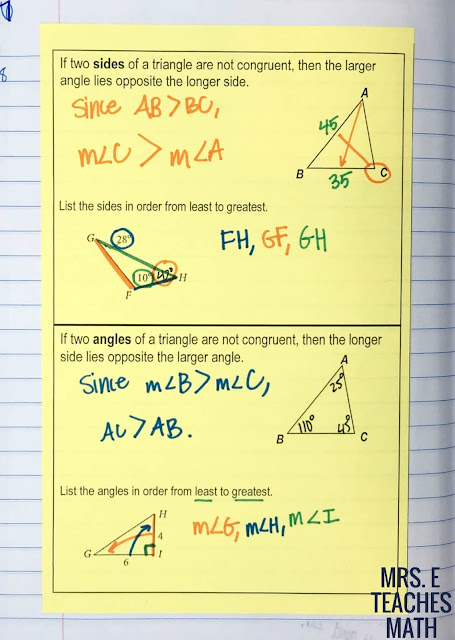 8
If two sides of a triangle are not congruent, then the larger
angle lies opposite the longer side.
Since AB > BC,
m∠C > m∠A
A
45
B
35
C
List the sides in order from least to greatest.
G
28°
10°
H
F
FH, GF, GH
If two angles of a triangle are not congruent, then the longer
side lies opposite the larger angle.
Since m∠B > m∠C,
AC > AB.
A
25°
B
110°
45°
C
List the angles in order from least to greatest.
H
4
G
6
I
m∠G, m∠H, m∠I
MRS. E
TEACHES
MATH